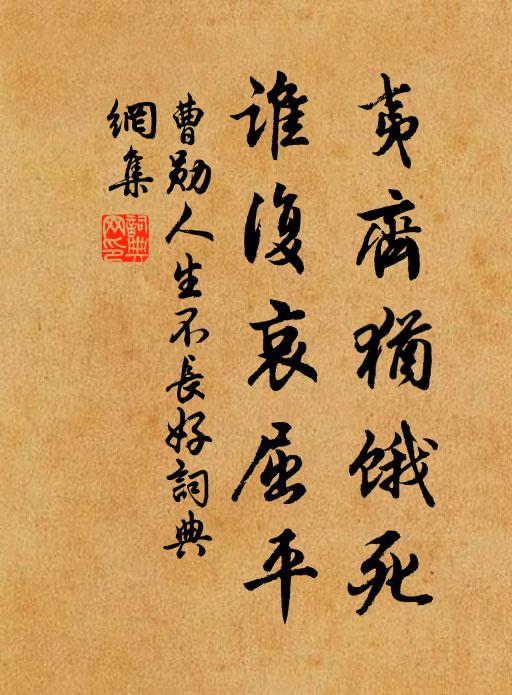 夷齊猶餓死
誰復哀屈平
曹勛人生不長好詞典
網集
詞典
网印